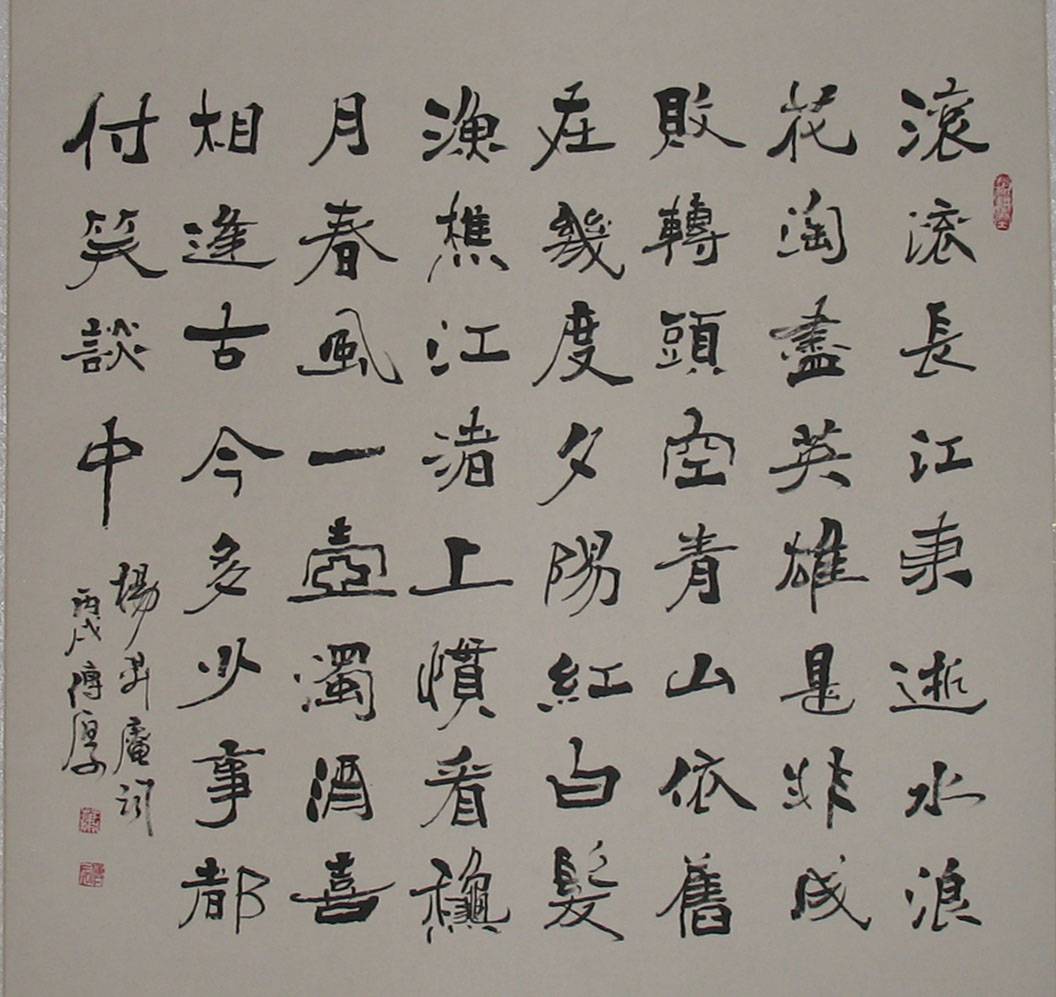 滾滾長江東逝水浪
花淘盡英雄是非成
敗轉頭空青山依舊
在幾度夕陽紅白髮
漁樵江渚上慣看穐
月春風一壺濁酒喜
相逢古今多少事都
付笑談中
楊升庵詞
丙戌傳厚